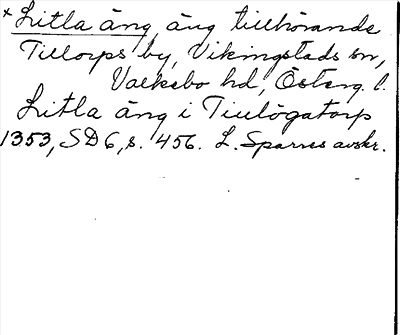 × Litla äng, äng tillhörande
Tillorps by, Vikingstads sn,
Valkebo hd, Österg. l.
Litla äng i Tiulögatorp
1353, SD 6, s. 456. L. Sparres avskr.